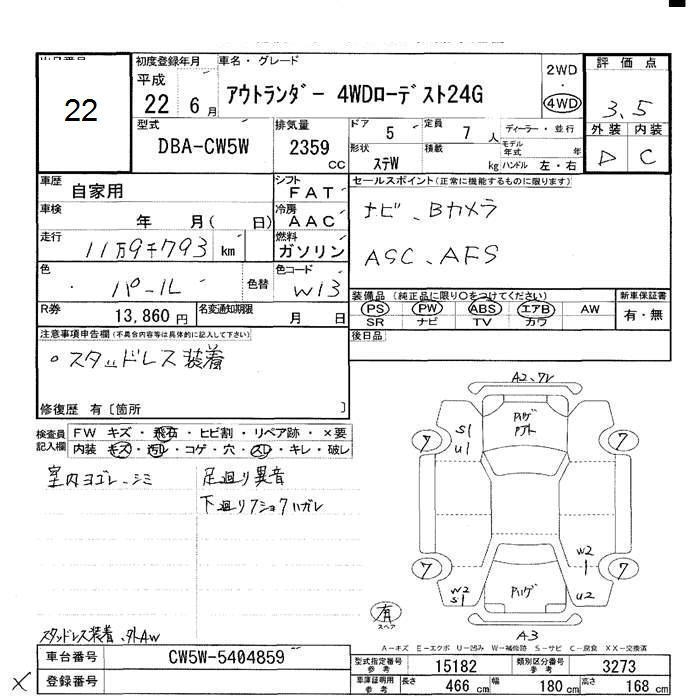 22
初度登録年月
平成
22 6月
車名・グレード
アウトランダー 4WDローデスト24G
2WD
・
4WD
評価点
3.5
外装 内装
D C
型式
DBA-CW5W
排気量
2359
cc
ドア
5
定員
7 人
形状
ステW
積載
kg
ディーラー・並行
モデル年式 年
ハンドル 左・右
車歴
自家用
シフト
FAT
車検
年 月( 日)
冷房
AAC
走行
11万9千793 km
燃料
ガソリン
色
パール
色替
色コード
W13
R券
13,860円
名変通知期限
月 日
セールスポイント(正常に機能するものに限ります)
ナビ、Bカメラ
ASC、AFS
装備品(純正品に限り○をつけてください)
PS PW ABS エアB AW
SR ナビ TV カワ
新車保証書
有・無
後日品
注意事項申告欄(不具合内容等は具体的に記入して下さい)
○スタッドレス装着
修復歴 有〔箇所 〕
検査員記入欄
FW キズ・飛石・ヒビ割・リペア跡・×要
内装 キズ・汚レ・コゲ・穴・スレ・キレ・破レ
室内ヨゴレ、シミ
足廻り異音
下廻り
ハガレ
スタッドレス装着、外AW
A2、
S1
U1
ハゲ
7
7
7
7
W2
S1
W2
1
U2
ハゲ
A3
有
スペア
A=キズ E=エクボ U=凹み W=補修跡 S=サビ C=腐食 XX=交換済
車台番号
CW5W-5404859
登録番号
×
型式指定番号
参考
15182
類別区分番号
参考
3273
車庫証明用
参考
長さ 466 cm
幅 180 cm
高さ 168 cm